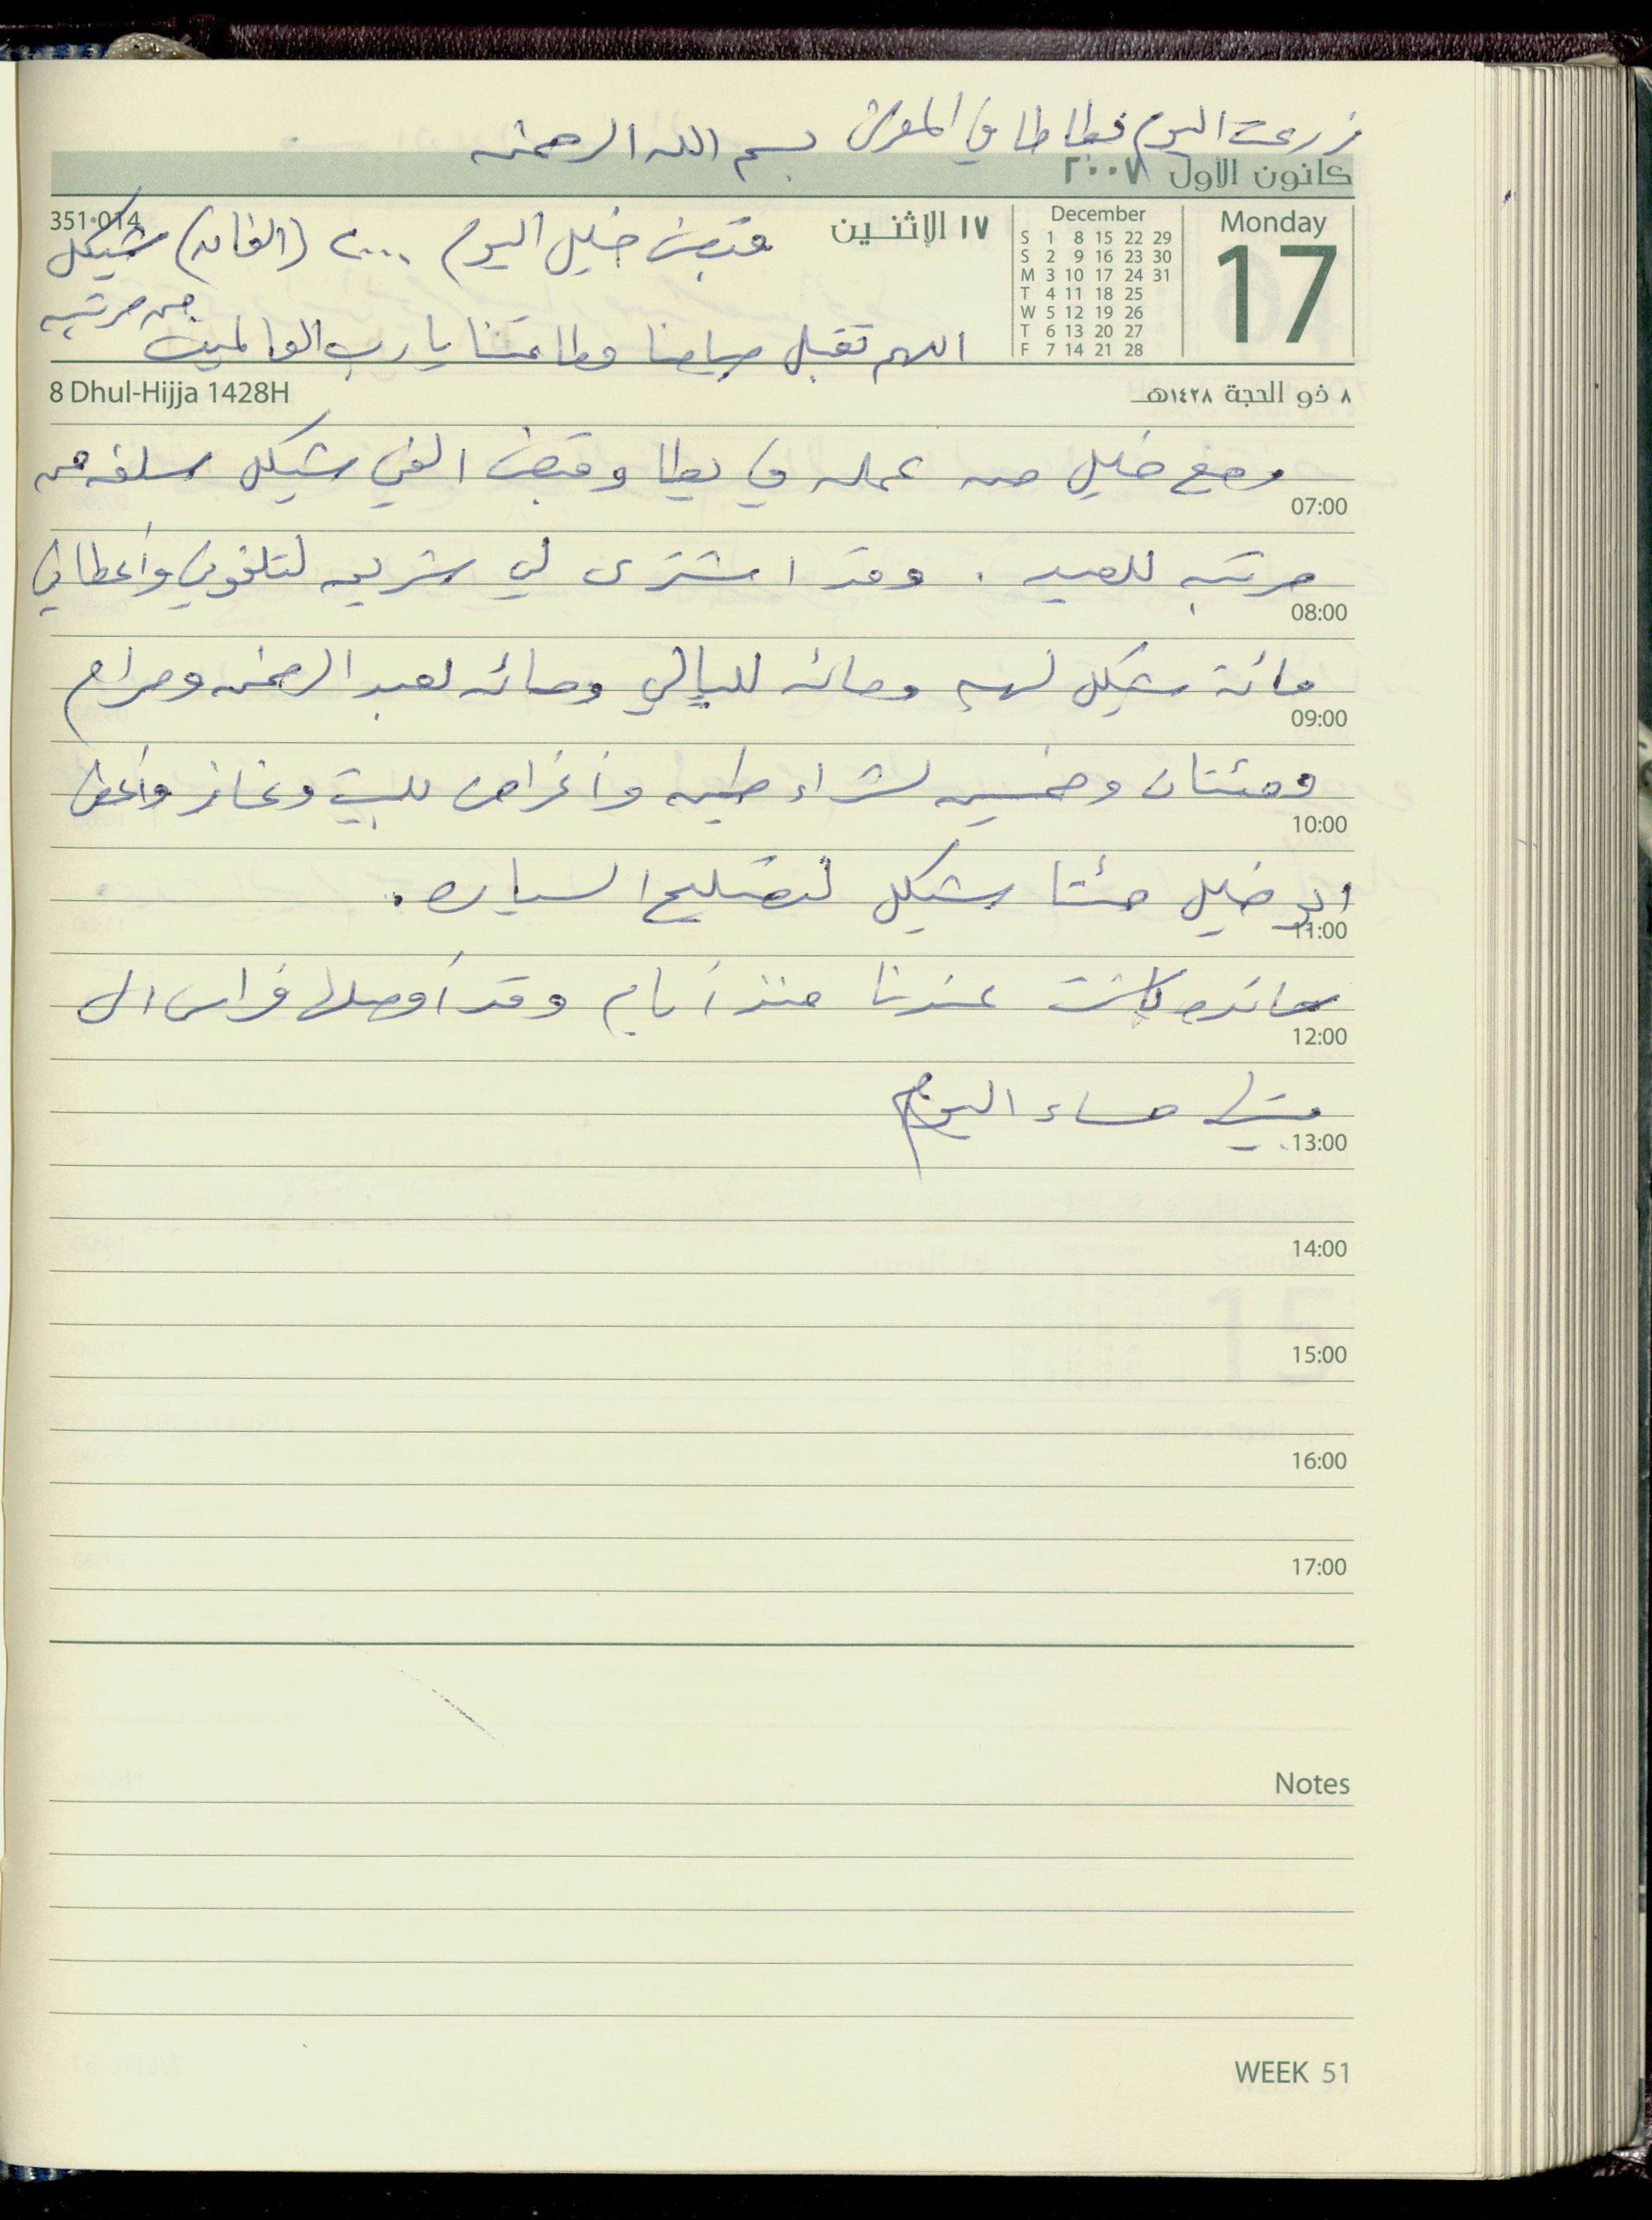 زرعت اليوم بطاطا في المعرش بسم الله الرحمن
كانون الأول ٢٠٠٧
Monday
17
December
S 1 8 15 22 29
S 2 9 16 23 30
M 3 10 17 24 31
T 4 11 18 25
W 5 12 19 26
T 6 13 20 27
F 7 14 21 28
١٧ الإثنين
351-014
قبض خليل اليوم ٢٠٠٠ (الفان) شيكل
من مرتبه
اللهم تقبل صيامنا وطاعتنا يا رب العالمين
8 Dhul-Hijja 1428H
٨ ذو الحجة ١٤٢٨هـ
خليل من عمله في يطا وقبض الفي شيكل سلفه من
07:00
مرتبه للعيد . وقد اشترى لي شريحه لتلفوني وأعطاني
08:00
مائة شيكل ومائه ومائه لعبد الرحمن ومرام
09:00
ومئتان وخمسين لشراء وأغراض للبيت وغاز وأعطى
10:00
خليل مئتا شيكل لتصليح السياره .
11:00
كانت عندنا منذ أيام وقد أوصلها فراس الى
12:00
بيتها مساء اليوم
13:00
14:00
15:00
16:00
17:00
Notes
WEEK 51